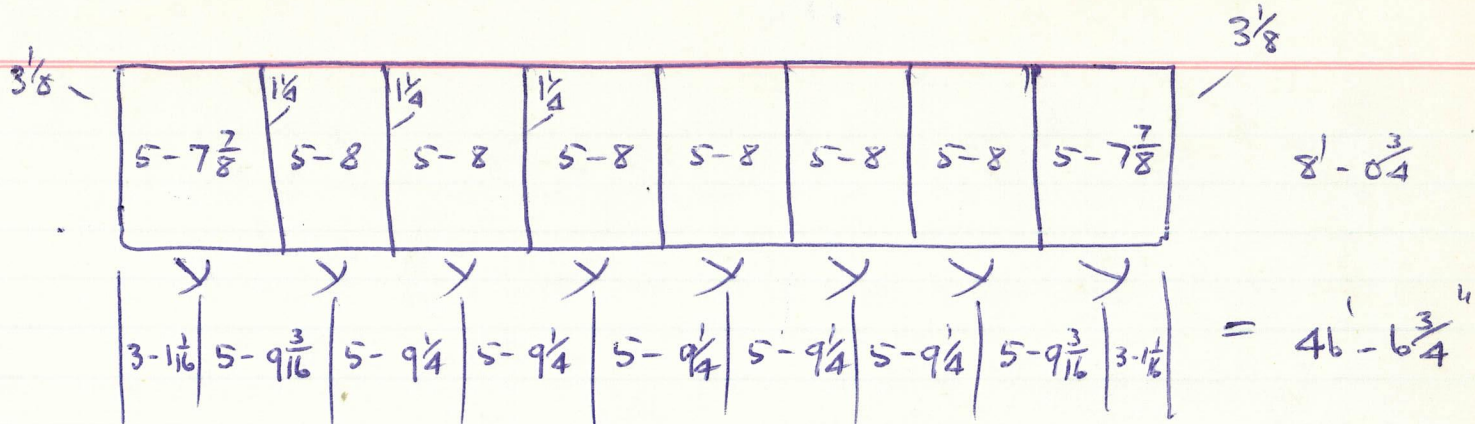 3 1/8
3 1/8
1 1/4 1 1/4 1 1/4
5-7 7/8 5-8 5-8 5-8 5-8 5-8 5-8 5-7 7/8 8'-0 3/4
3-1 1/16 5-9 3/16 5-9 1/4 5-9 1/4 5-9 1/4 5-9 1/4 5-9 1/4 5-9 3/16 3-1 1/16 = 46'-6 3/4"